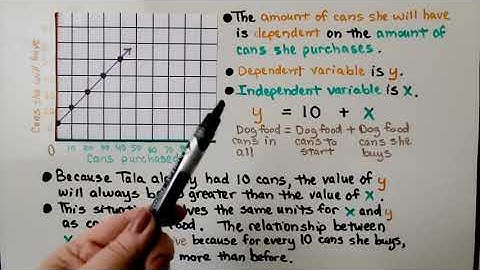 Cans she will have
0 10 20 30 40 50
Cans purchased
• The amount of cans she will have
is dependent on the amount of
cans she purchases.
• Dependent variable is y.
• Independent variable is x.
y = 10 + x
Dog food = Dog food + Dog food
cans in cans to cans she
all start buys
• Because Tala al y had 10 cans, the value of y
will always b greater than the value of x.
• This situati ves the same units for x and y
as ca food. The relationship between
x because for every 10 cans she buys,
more than before.